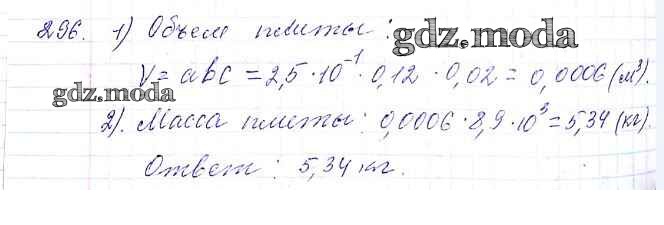 296. 1) Объем плиты:
gdz.moda
V = abc = 2,5 · 10⁻¹ · 0,12 · 0,02 = 0,0006 (м³).
gdz.moda
2). Масса плиты: 0,0006 · 8,9 · 10³ = 5,34 (кг).
Ответ: 5,34 кг.